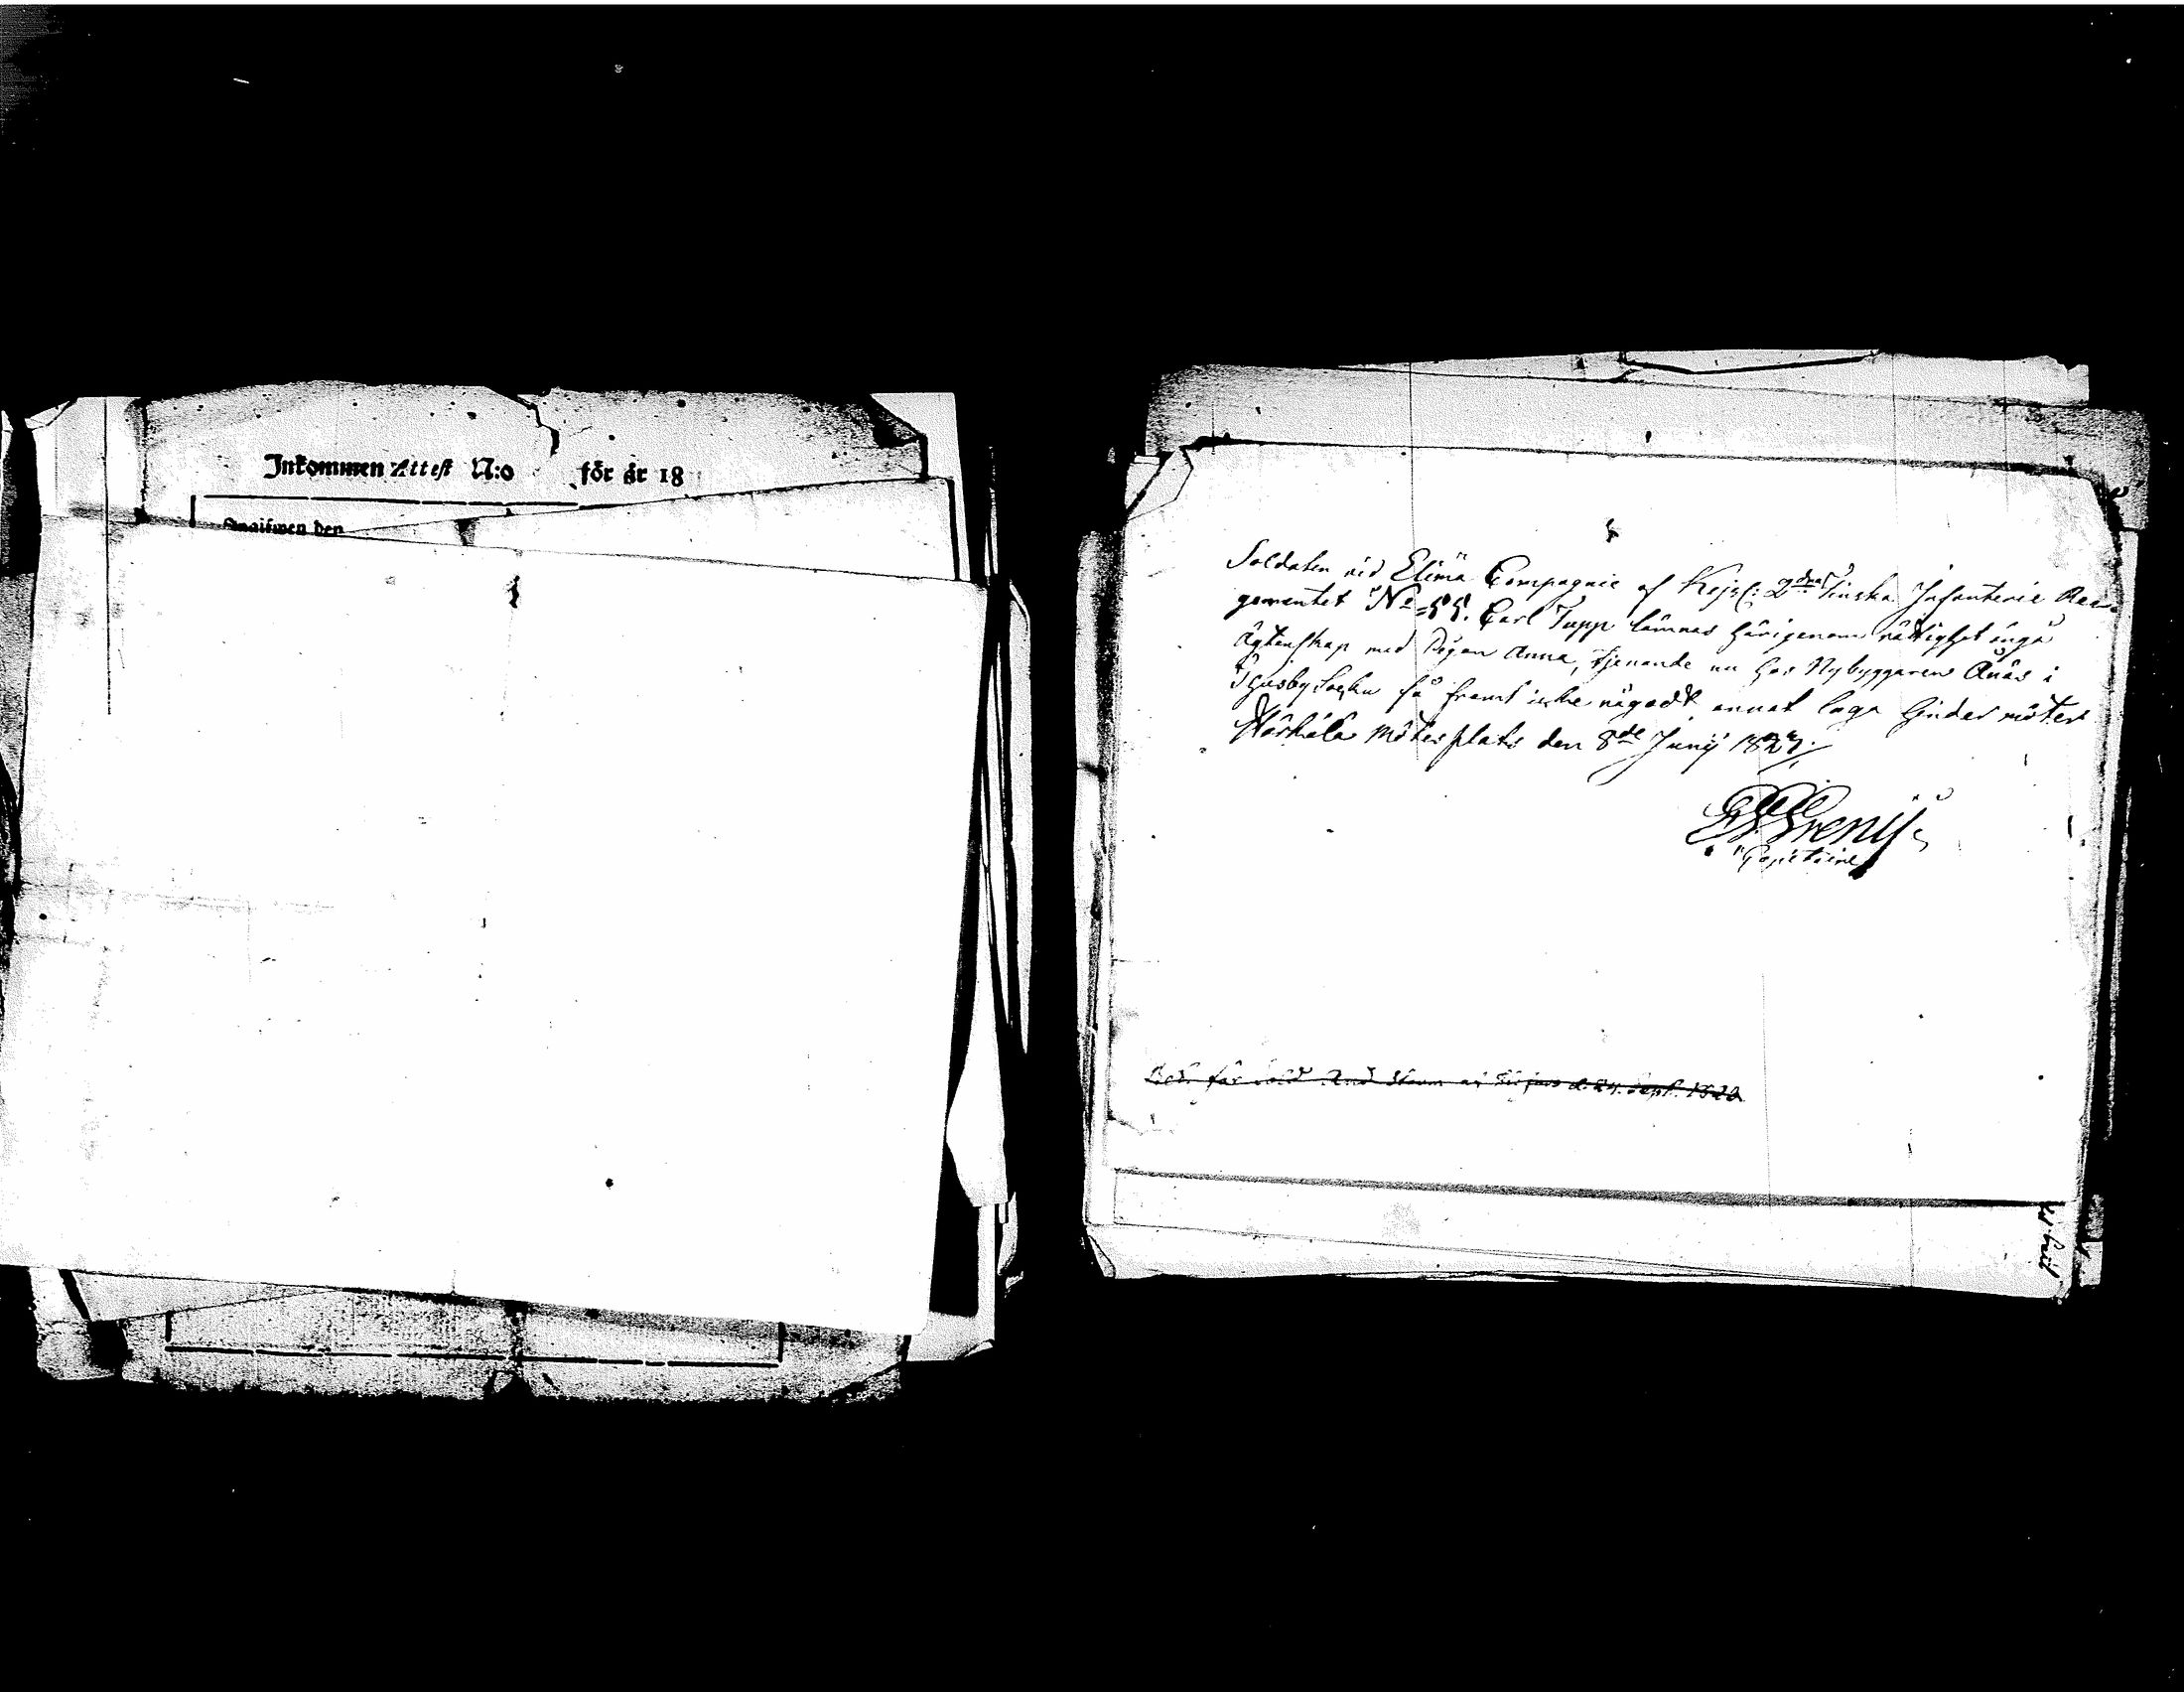 Inkommen Attest N:o för år 18
Soldaten vid Elimä Compagnie af Kejs: 2dra Finska Infanterie Rea-
gementet No 55. Carl Tupp lämnas härigenom rättighet ingå
ägtenskap med Pigan Anna, tjenande nu hos Nybyggaren Ånäs i
Socken så framt icke någodt annat laga hinder möter
Härkälä Mötesplats den 8de Junij 1827.
Capitaine
för Sold And Storm d. 24. Sept. 1820